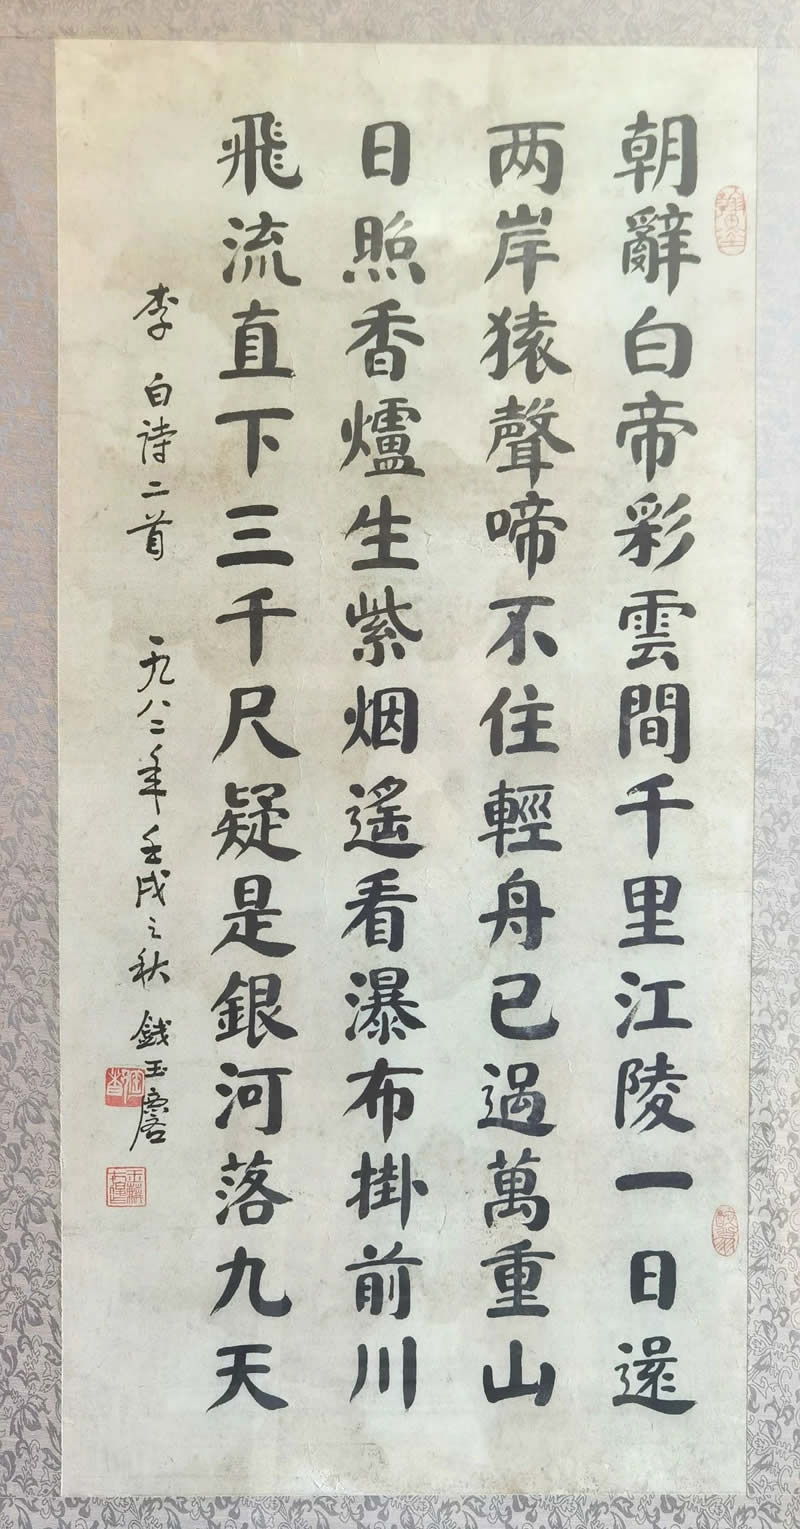 朝辭白帝彩雲間千里江陵一日還
两岸猿聲啼不住輕舟已過萬重山
日照香爐生紫烟遙看瀑布掛前川
飛流直下三千尺疑是銀河落九天
李白诗二首 一九八二年壬戌之秋